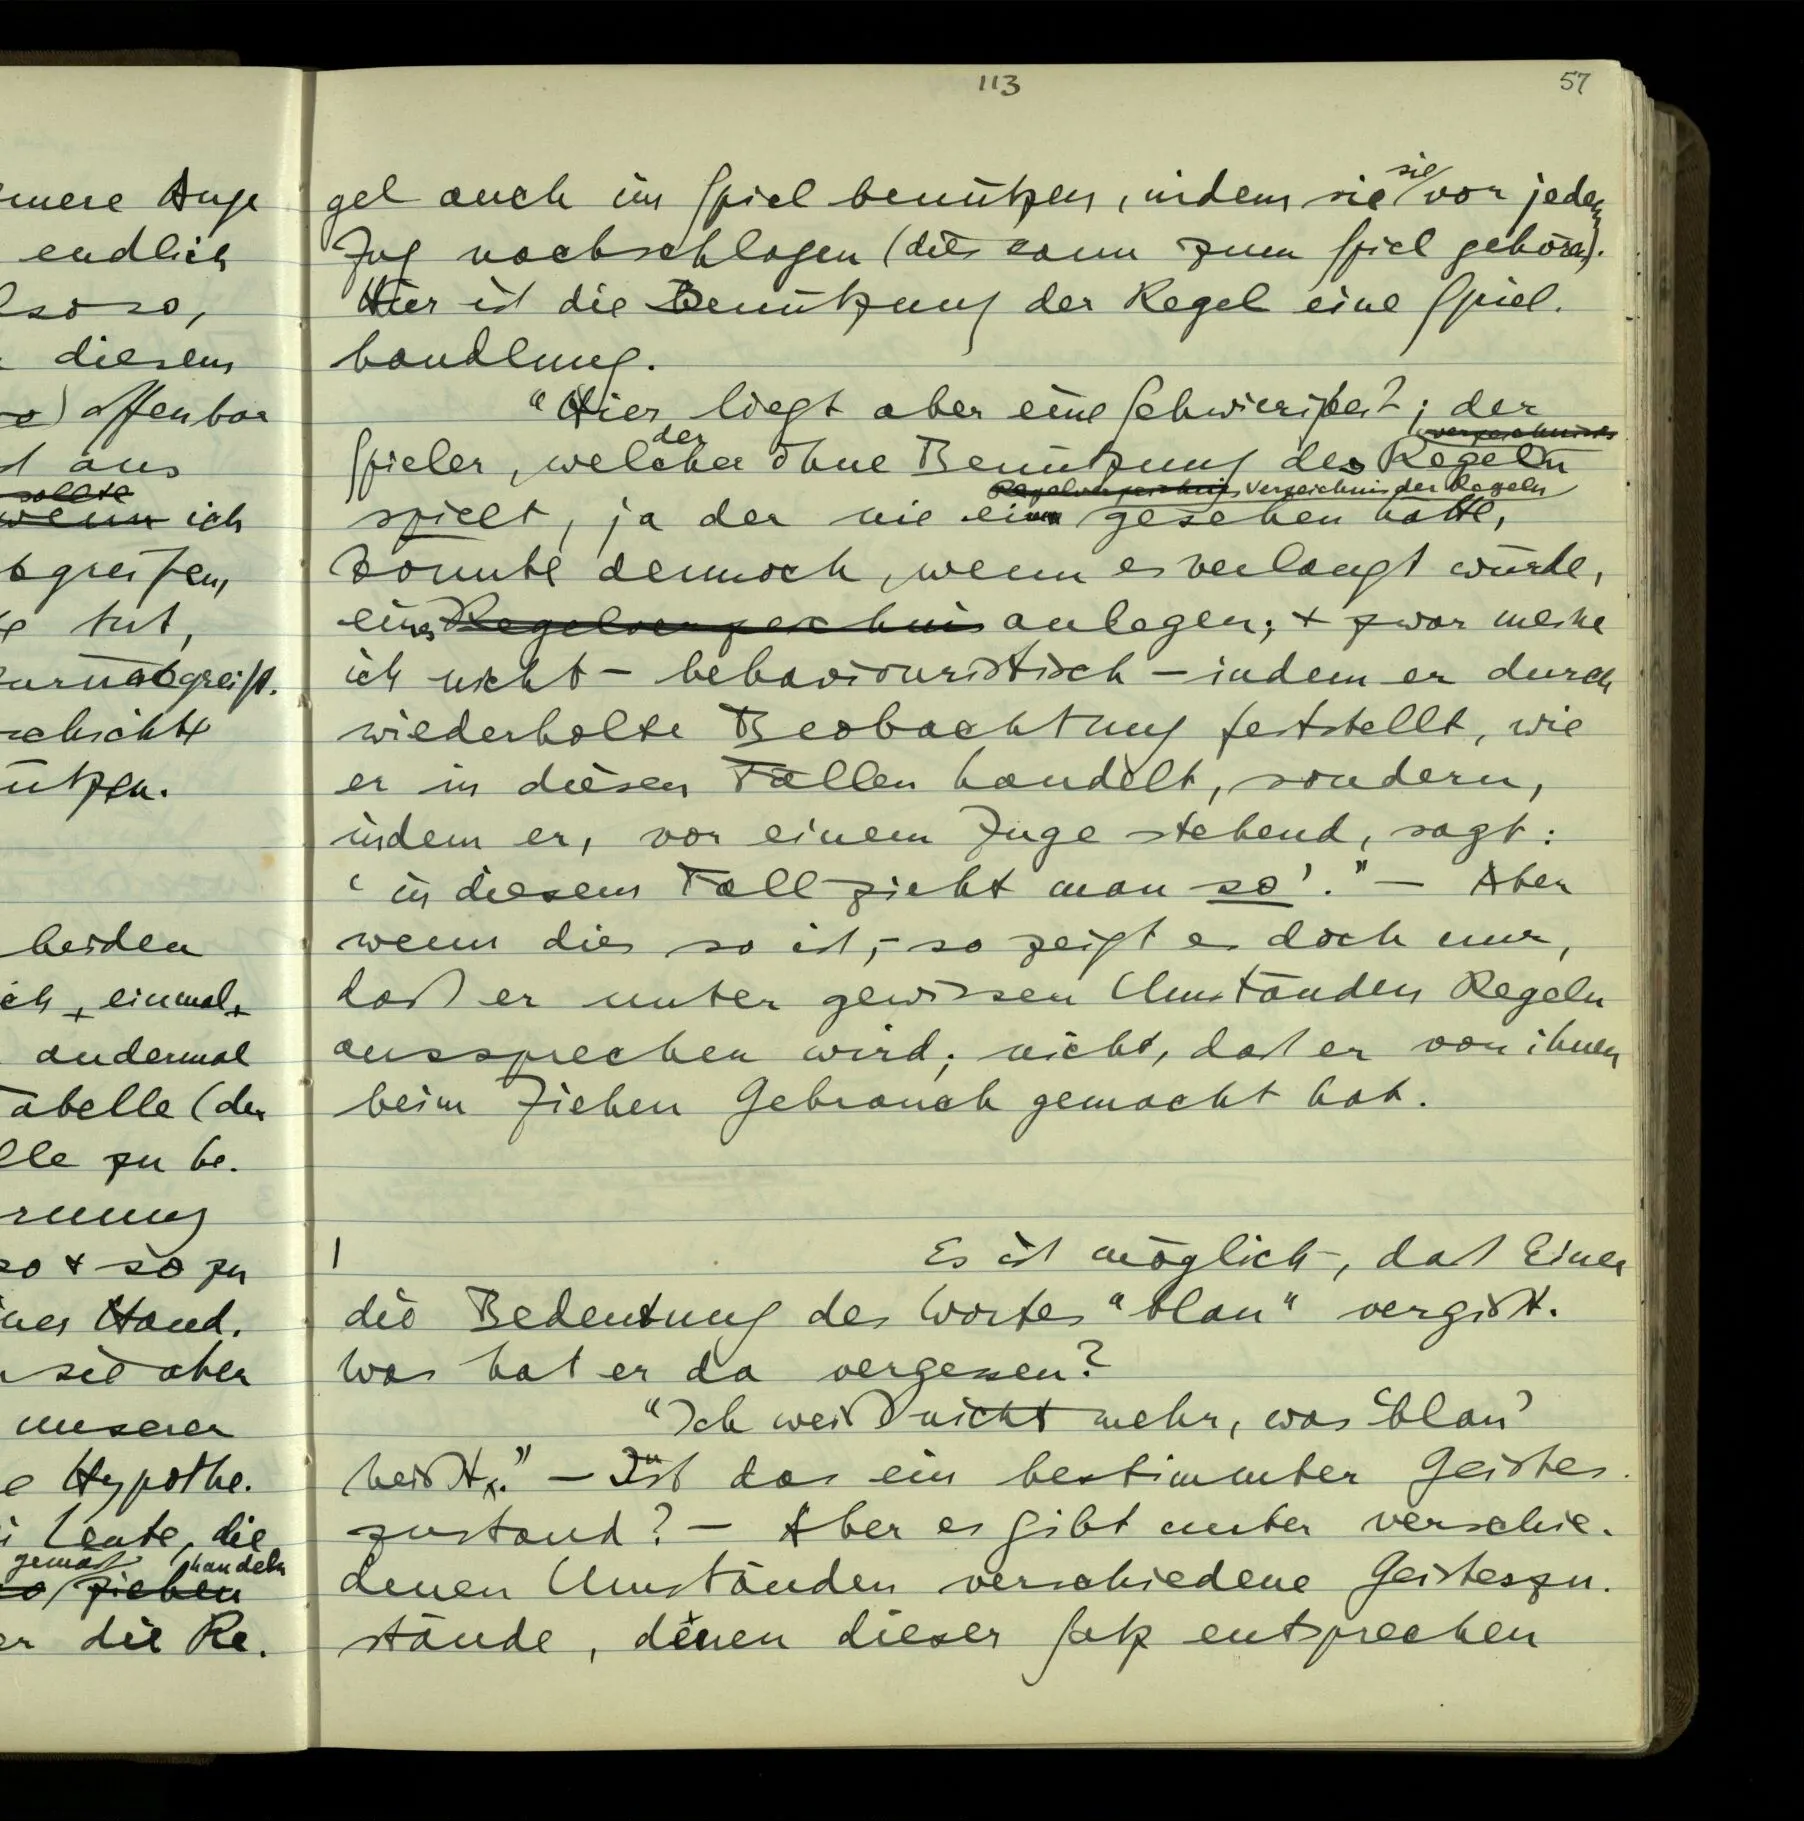 113
57
sie
gel auch im Spiel benützen, indem sie vor jedem
Zug nachschlagen (dies kann zum Spiel gehören).
Hier ist die Benützung der Regel eine Spiel-
handlung.
"Hier liegt aber eine Schwierigkeit; der
der verzeichnisses
Spieler, welcher ohne Benützung der Regeln
Regelverzeichnis Verzeichnis der Regeln
spielt, ja der nie ein gesehen hätte,
könnte dennoch, wenn es verlangt würde,
eines Regelverzeichnis anlegen; + zwar meine
ich nicht – behaviouristisch – indem er durch
wiederholte Beobachtung feststellt, wie
er in diesen Fällen handelt, sondern,
indem er, vor einem Zuge stehend, sagt:
'in diesem Fall zieht man so'." – Aber
wenn dies so ist, – so zeigt es doch nur,
daß er unter gewissen Umständen Regeln
aussprechen wird; nicht, daß er von ihnen
beim Ziehen Gebrauch gemacht hat.
| Es ist möglich, daß Einer
die Bedeutung des Wortes "blau" vergißt.
Was hat er da vergessen?
"Ich weiß nicht mehr, was 'blau'
heißt." – Ist das ein bestimmter Geistes-
zustand? – Aber es gibt unter verschie-
denen Umständen verschiedene Geisteszu-
stände, denen dieser Satz entsprechen
endlich
so,
diesem
offenbar
aus
sollte
wenn ich
tut,
beiden
einmal
andermal
Tabelle (der
zu be-
so + so zu
Hand-
sie aber
unserer
Hypothe-
Leute, die
gemäß handeln
ziehen
die Re-